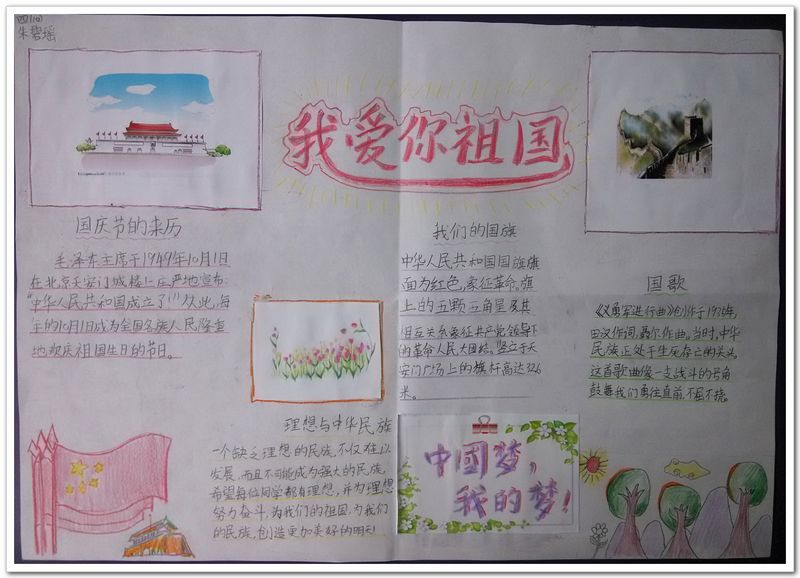 四(1)
朱碧瑶
我爱你祖国
国庆节的来历
毛泽东主席于1949年10月1日
在北京天安门城楼上庄严地宣布:
"中华人民共和国成立了!"从此,每
年的10月1日成为全国各族人民隆重
地欢庆祖国生日的节日。
我们的国旗
中华人民共和国国旗旗
面为红色,象征革命,旗
上的五颗五角星及其
相互关系象征共产党领导下
的革命人民大团结。竖立于天
安门广场上的旗杆高达32.6
米。
国歌
《义勇军进行曲》创作于1935年,
田汉作词,聂尔作曲。当时,中华
民族正处于生死存亡的关头,
这首歌曲像一支战斗的号角
鼓舞我们勇往直前,不屈不挠。
理想与中华民族
一个缺乏理想的民族,不仅难以
发展,而且不可能成为强大的民族,
希望每位同学都有理想,并为理想
努力奋斗,为我们的祖国,为我们
的民族,创造更加美好的明天!
中國梦,
我的梦!